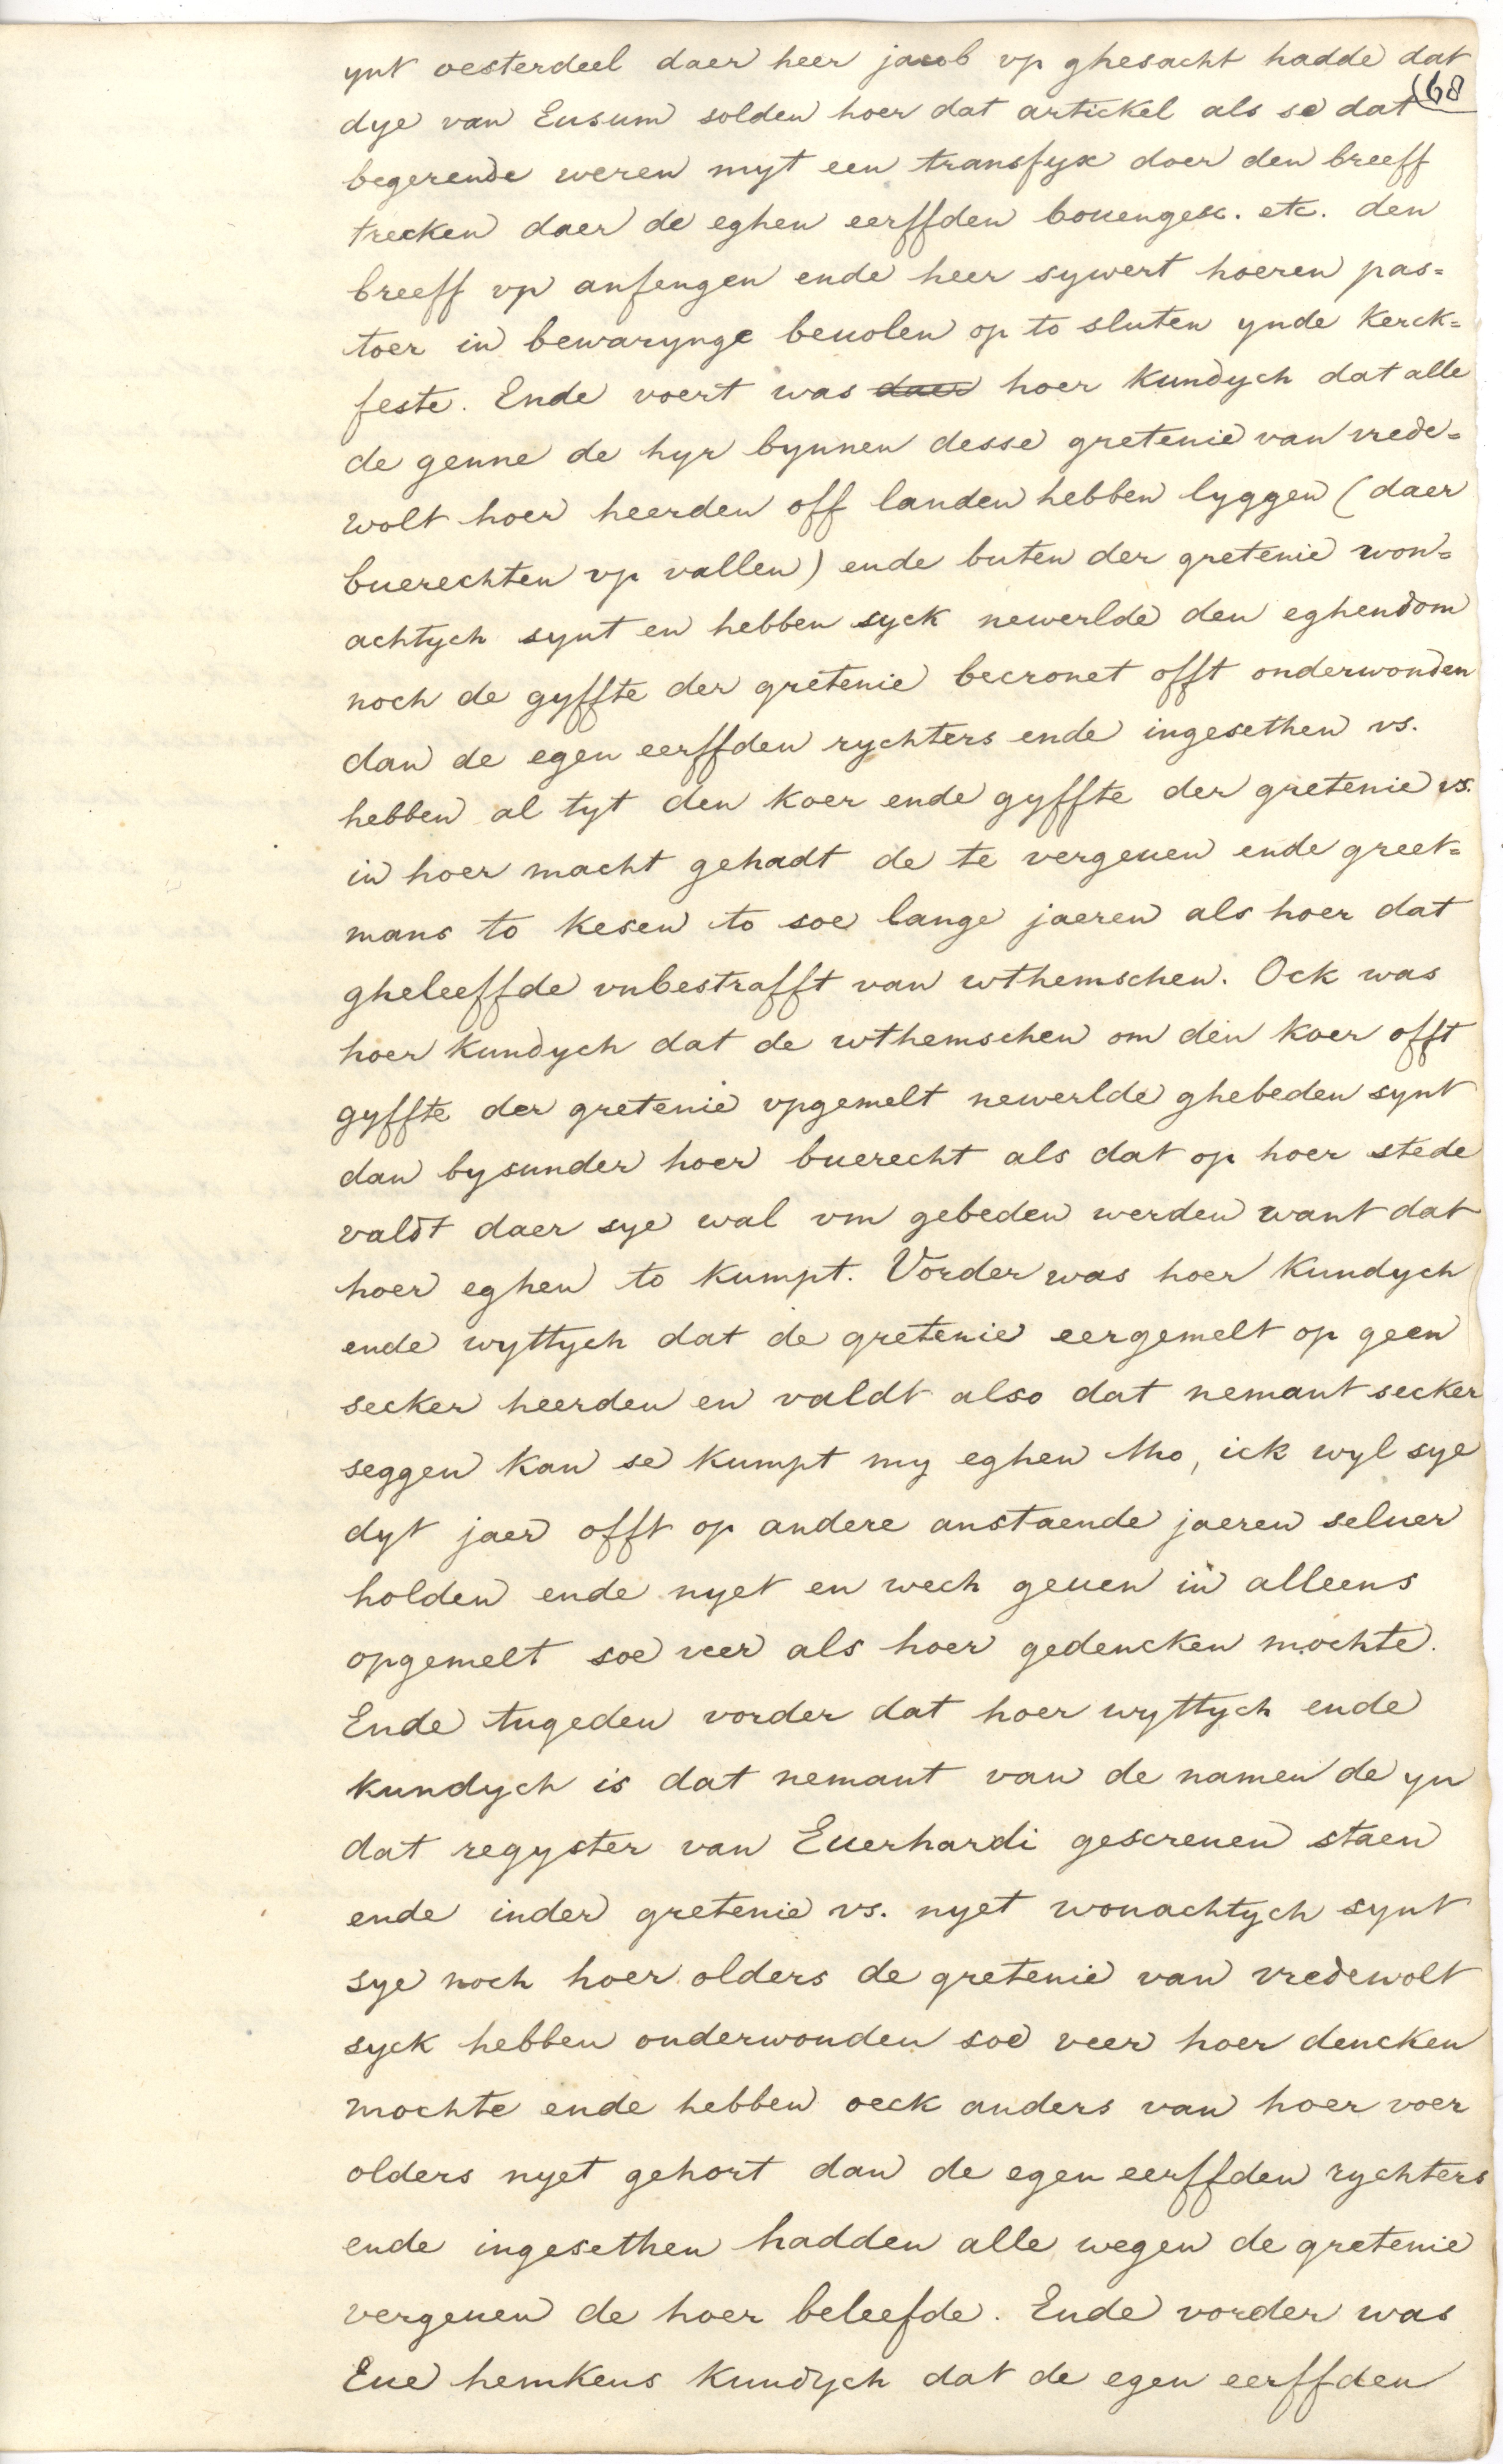 ynt oesterdeel daer heer jacob vp ghesacht hadde dat
168
dye van Eusum solden hoer dat artickel als se dat
begerende weren myt een transfyx doer den breeff
trecken daer de eghen eerffden bouengesc. etc. den
breeff vp anfengen ende heer sywert hoeren pas=
toer in bewarynge beuolen op to sluten ynde Kerck=
feste. Ende voert was daer hoer Kundych dat alle
de genne de hyr bynnen desse gretenie van vrede=
wolt hoer heerden off landen hebben lyggen (daer
buerechten vp vallen) ende buten der gretenie won=
achtych synt en hebben syck newerlde den eghendom
noch de gyffte der gretenie becronet offt onderwonden
dan de egen eerffden rychters ende ingesethen vs.
hebben al tyt den Koer ende gyffte der gretenie vs.
in hoer macht gehadt de te vergeuen ende greet=
mans to Kesen to soe lange jaeren als hoer dat
gheleeffde vnbestrafft van wthemschen. Ock was
hoer Kundych dat de wthemschen om den Koer offt
gyffte der gretenie vpgemelt newerlde ghebeden synt
dan bysunder hoer buerecht als dat op hoer stede
valdt daer sye wal vm gebeden werden want dat
hoer eghen to Kumpt. Vorder was hoer Kundych
ende wyttych dat de gretenie eergemelt op geen
secker heerden en valdt also dat nemant secker
seggen Kan se Kumpt my eghen tho, ick wyl sye
dyt jaer offt op andere anstaende jaeren seluer
holden ende nyet en wech geuen in alleens
opgemelt soe veer als hoer gedencken mochte.
Ende tugeden vorder dat hoer wyttych ende
Kundych is dat nemant van de namen de yn
dat regyster van Euerhardi gescreuen staen
ende inder gretenie vs. nyet wonachtych synt
sye noch hoer olders de gretenie van vredewolt
syck hebben onderwonden soe veer hoer dencken
mochte ende hebben oeck anders van hoer voer
olders nyet gehort dan de egen eerffden rychters
ende ingesethen hadden alle wegen de gretenie
vergeuen de hoer beleefde. Ende vorder was
Eue hemkens Kundych dat de egen eerffden